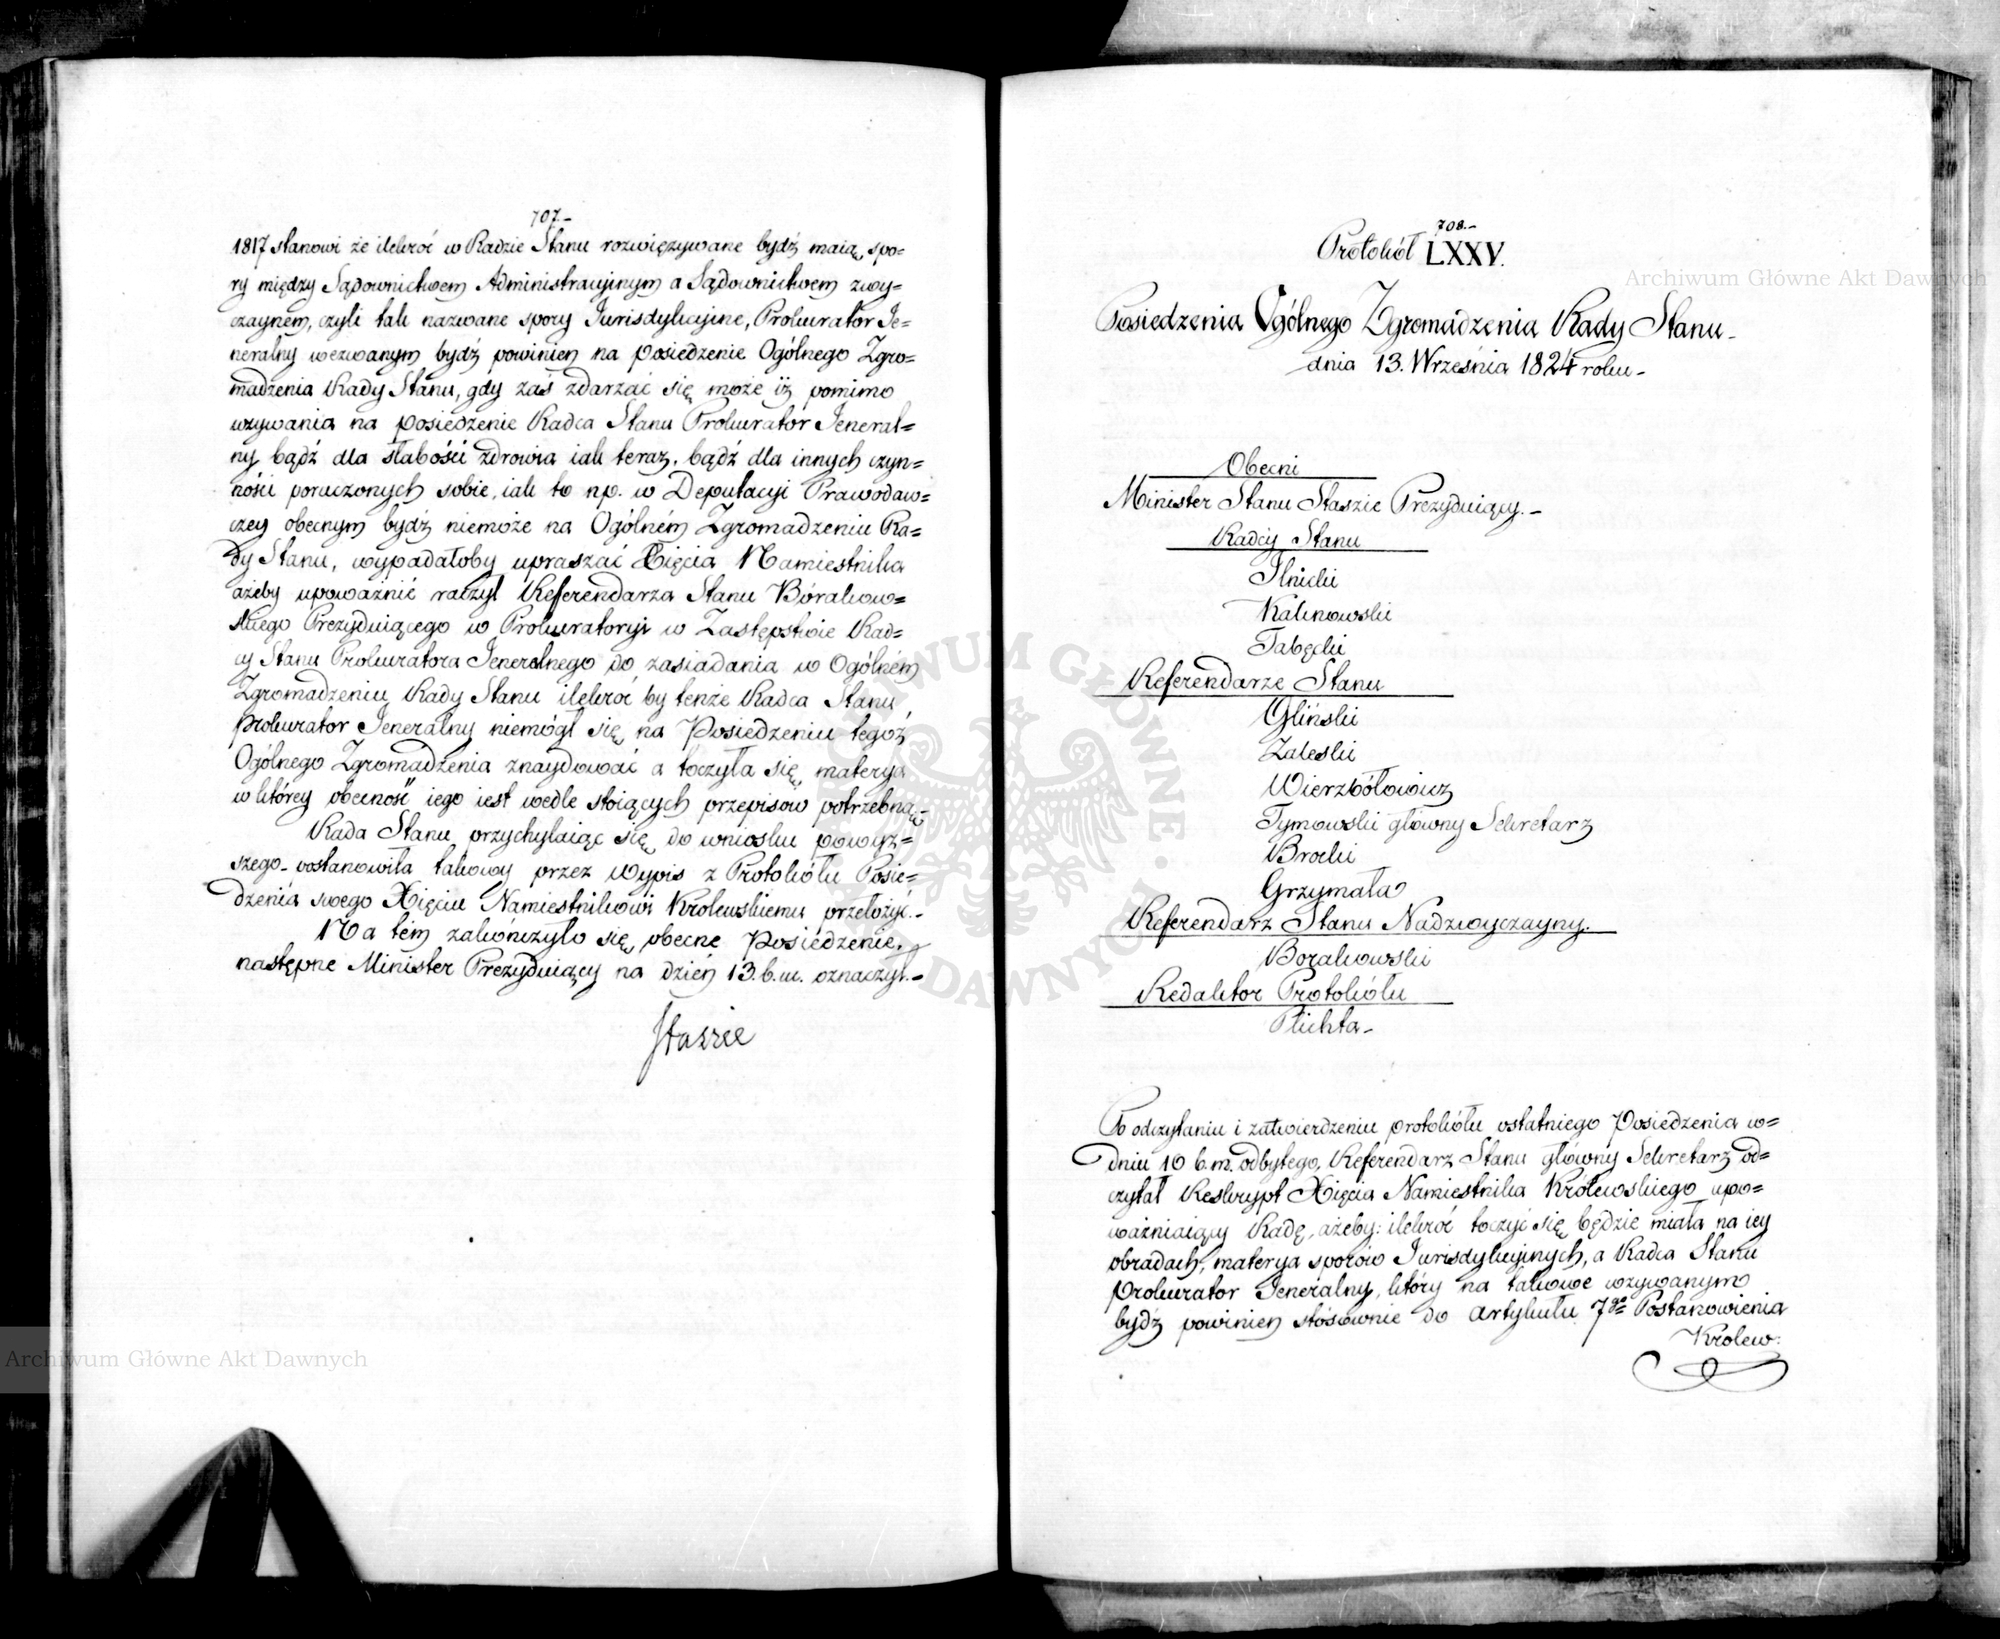 707-
1817 stanowi że ilekroć w Radzie Stanu rozwięzywane bydź maią spo=
ry między Sądownictwem Administracyinym a Sądownictwem zwy=
czaynem, czyli tak nazwane spory Jurisdykcyine, Prokurator Je=
neralny wezwanym bydź powinien na posiedzenie Ogólnego Zgro=
madzenia Rady Stanu, gdy zaś zdarzać się może iż pomimo
wzywania na posiedzenie Radca Stanu Prokurator Jeneral=
ny bądź dla słabości zdrowia iak teraz, bądź dla innych czyn=
ności poruczonych sobie, iak to np. w Deputacyi Prawodaw=
czey obecnym bydź niemoże na Ogólném Zgromadzeniu Ra=
dy Stanu, wypadałoby upraszać Xięcia Namiestnika
ażeby upoważnić raczył Referendarza Stanu Bórakow=
skiego Prezyduiącego w Prokuratoryi w Zastępstwie Rad=
cy Stanu Prokuratora Jeneralnego do zasiadania w Ogólném
Zgromadzeniu Rady Stanu ilekroć by tenże Radca Stanu
Prokurator Jeneralny niemógł się na Posiedzeniu tegoż
Ogólnego Zgromadzenia znaydować a toczyła się materya
w którey obecność iego iest wedle stoiących przepisów potrzebną.-
Rada Stanu przychylaiąc się do wniosku powyż=
szego postanowiła takowy przez Wypis z Protokółu Posie=
dzenia swego Xięciu Namiestnikowi Królewskiemu przełożyć.-
Na tém zakończyło się obecne Posiedzenie,
następne Minister Prezyduiący na dzień 13. b. m. oznaczył.-
Staszic
708.-
Protokół LXXV.
Posiedzenia Ogólnego Zgromadzenia Rady Stanu-
dnia 13. Września 1824 roku-
Obecni
Minister Stanu Staszic Prezyduiący.-
Radcy Stanu
Ilnicki
Kalinowski
Tabęcki
Referendarze Stanu
Gliński
Zaleski
Wierzbółowicz
Tymowski główny Sekretarz
Brocki
Grzymała
Referendarz Stanu Nadzwyczayny.
Borakowski
Redaktor Protokółu
Plichta-
Po odczytaniu i zatwierdzeniu protokółu ostatniego Posiedzenia w=
dniu 10 b. m. odbytego, Referendarz Stanu główny Sekretarz od=
czytał Reskrypt Xięcia Namiestnika Królewskiego upo=
ważniaiący Radę, ażeby: ilekroć toczyć się będzie miała na iey
obradach, materya sporów Jurisdykcyinych, a Radca Stanu
Prokurator Jeneralny, który na takowe wzywanym
bydź powinien stósownie do artykułu 7go Postanowienia
Królew:
Archiwum Główne Akt Dawnych
Archiwum Główne Akt Dawnych
ARCHIWUM GŁÓWNE · AKT DAWNYCH ·